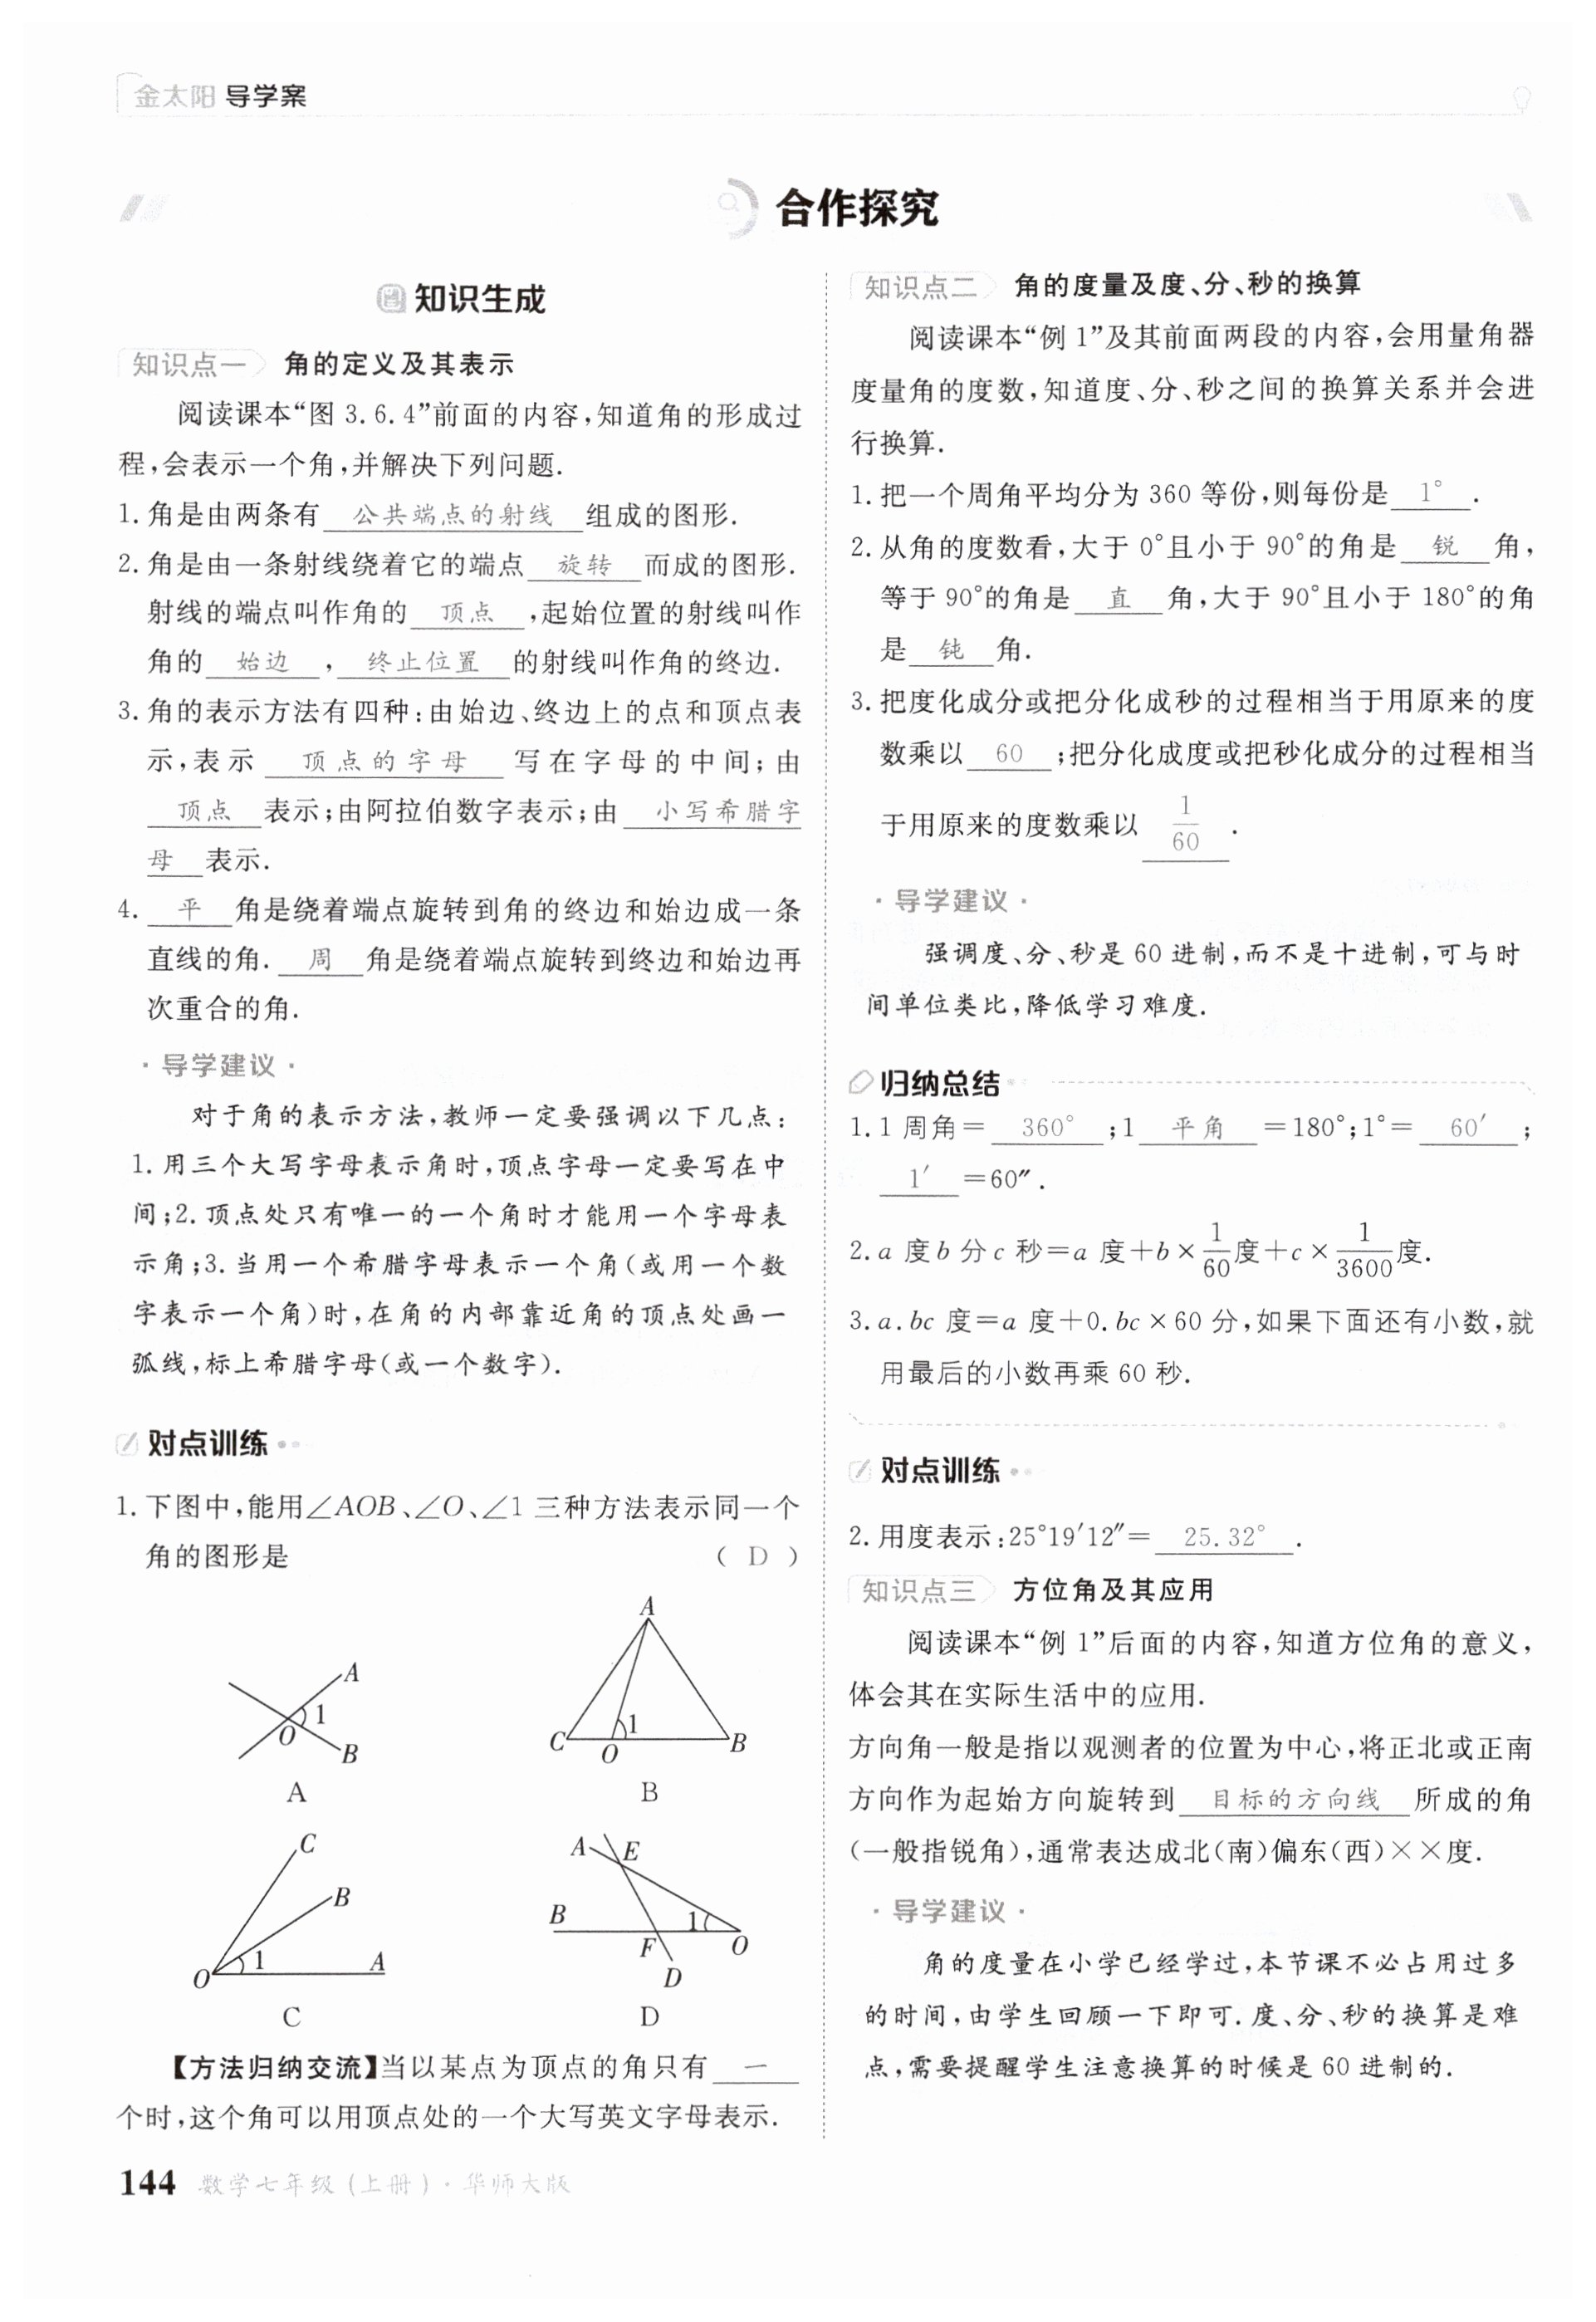 金太阳 导学案
合作探究
知识生成
知识点一 角的定义及其表示
阅读课本“图 3.6.4”前面的内容,知道角的形成过
程,会表示一个角,并解决下列问题.
1.角是由两条有 公共端点的射线 组成的图形.
2.角是由一条射线绕着它的端点 旋转 而成的图形.
射线的端点叫作角的 顶点 ,起始位置的射线叫作
角的 始边 , 终止位置 的射线叫作角的终边.
3.角的表示方法有四种:由始边、终边上的点和顶点表
示,表示 顶点的字母 写在字母的中间;由
顶点 表示;由阿拉伯数字表示;由 小写希腊字
母 表示.
4. 平 角是绕着端点旋转到角的终边和始边成一条
直线的角. 周 角是绕着端点旋转到终边和始边再
次重合的角.
·导学建议·
对于角的表示方法,教师一定要强调以下几点:
1.用三个大写字母表示角时,顶点字母一定要写在中
间;2.顶点处只有唯一的一个角时才能用一个字母表
示角;3.当用一个希腊字母表示一个角(或用一个数
字表示一个角)时,在角的内部靠近角的顶点处画一
弧线,标上希腊字母(或一个数字).
对点训练
1.下图中,能用∠AOB、∠O、∠1 三种方法表示同一个
角的图形是 ( D )
A
1
O
B
A
A
1
C
O
B
B
C
B
1
O
A
C
A
E
B
1
F
O
D
D
【方法归纳交流】当以某点为顶点的角只有 一
个时,这个角可以用顶点处的一个大写英文字母表示.
知识点二 角的度量及度、分、秒的换算
阅读课本“例 1”及其前面两段的内容,会用量角器
度量角的度数,知道度、分、秒之间的换算关系并会进
行换算.
1.把一个周角平均分为 360 等份,则每份是 1° .
2.从角的度数看,大于 0°且小于 90°的角是 锐 角,
等于 90°的角是 直 角,大于 90°且小于 180°的角
是 钝 角.
3.把度化成分或把分化成秒的过程相当于用原来的度
数乘以 60 ;把分化成度或把秒化成分的过程相当
于用原来的度数乘以 1/60 .
·导学建议·
强调度、分、秒是 60 进制,而不是十进制,可与时
间单位类比,降低学习难度.
归纳总结
1.1 周角= 360° ;1 平角 =180°;1°= 60′ ;
1′ =60″.
2.a 度 b 分 c 秒=a 度+b×1/60度+c×1/3600度.
3.a.bc 度=a 度+0.bc×60 分,如果下面还有小数,就
用最后的小数再乘 60 秒.
对点训练
2.用度表示:25°19′12″= 25.32° .
知识点三 方位角及其应用
阅读课本“例 1”后面的内容,知道方位角的意义,
体会其在实际生活中的应用.
方向角一般是指以观测者的位置为中心,将正北或正南
方向作为起始方向旋转到 目标的方向线 所成的角
(一般指锐角),通常表达成北(南)偏东(西)××度.
·导学建议·
角的度量在小学已经学过,本节课不必占用过多
的时间,由学生回顾一下即可.度、分、秒的换算是难
点,需要提醒学生注意换算的时候是 60 进制的.
144 数学七年级(上册)·华师大版